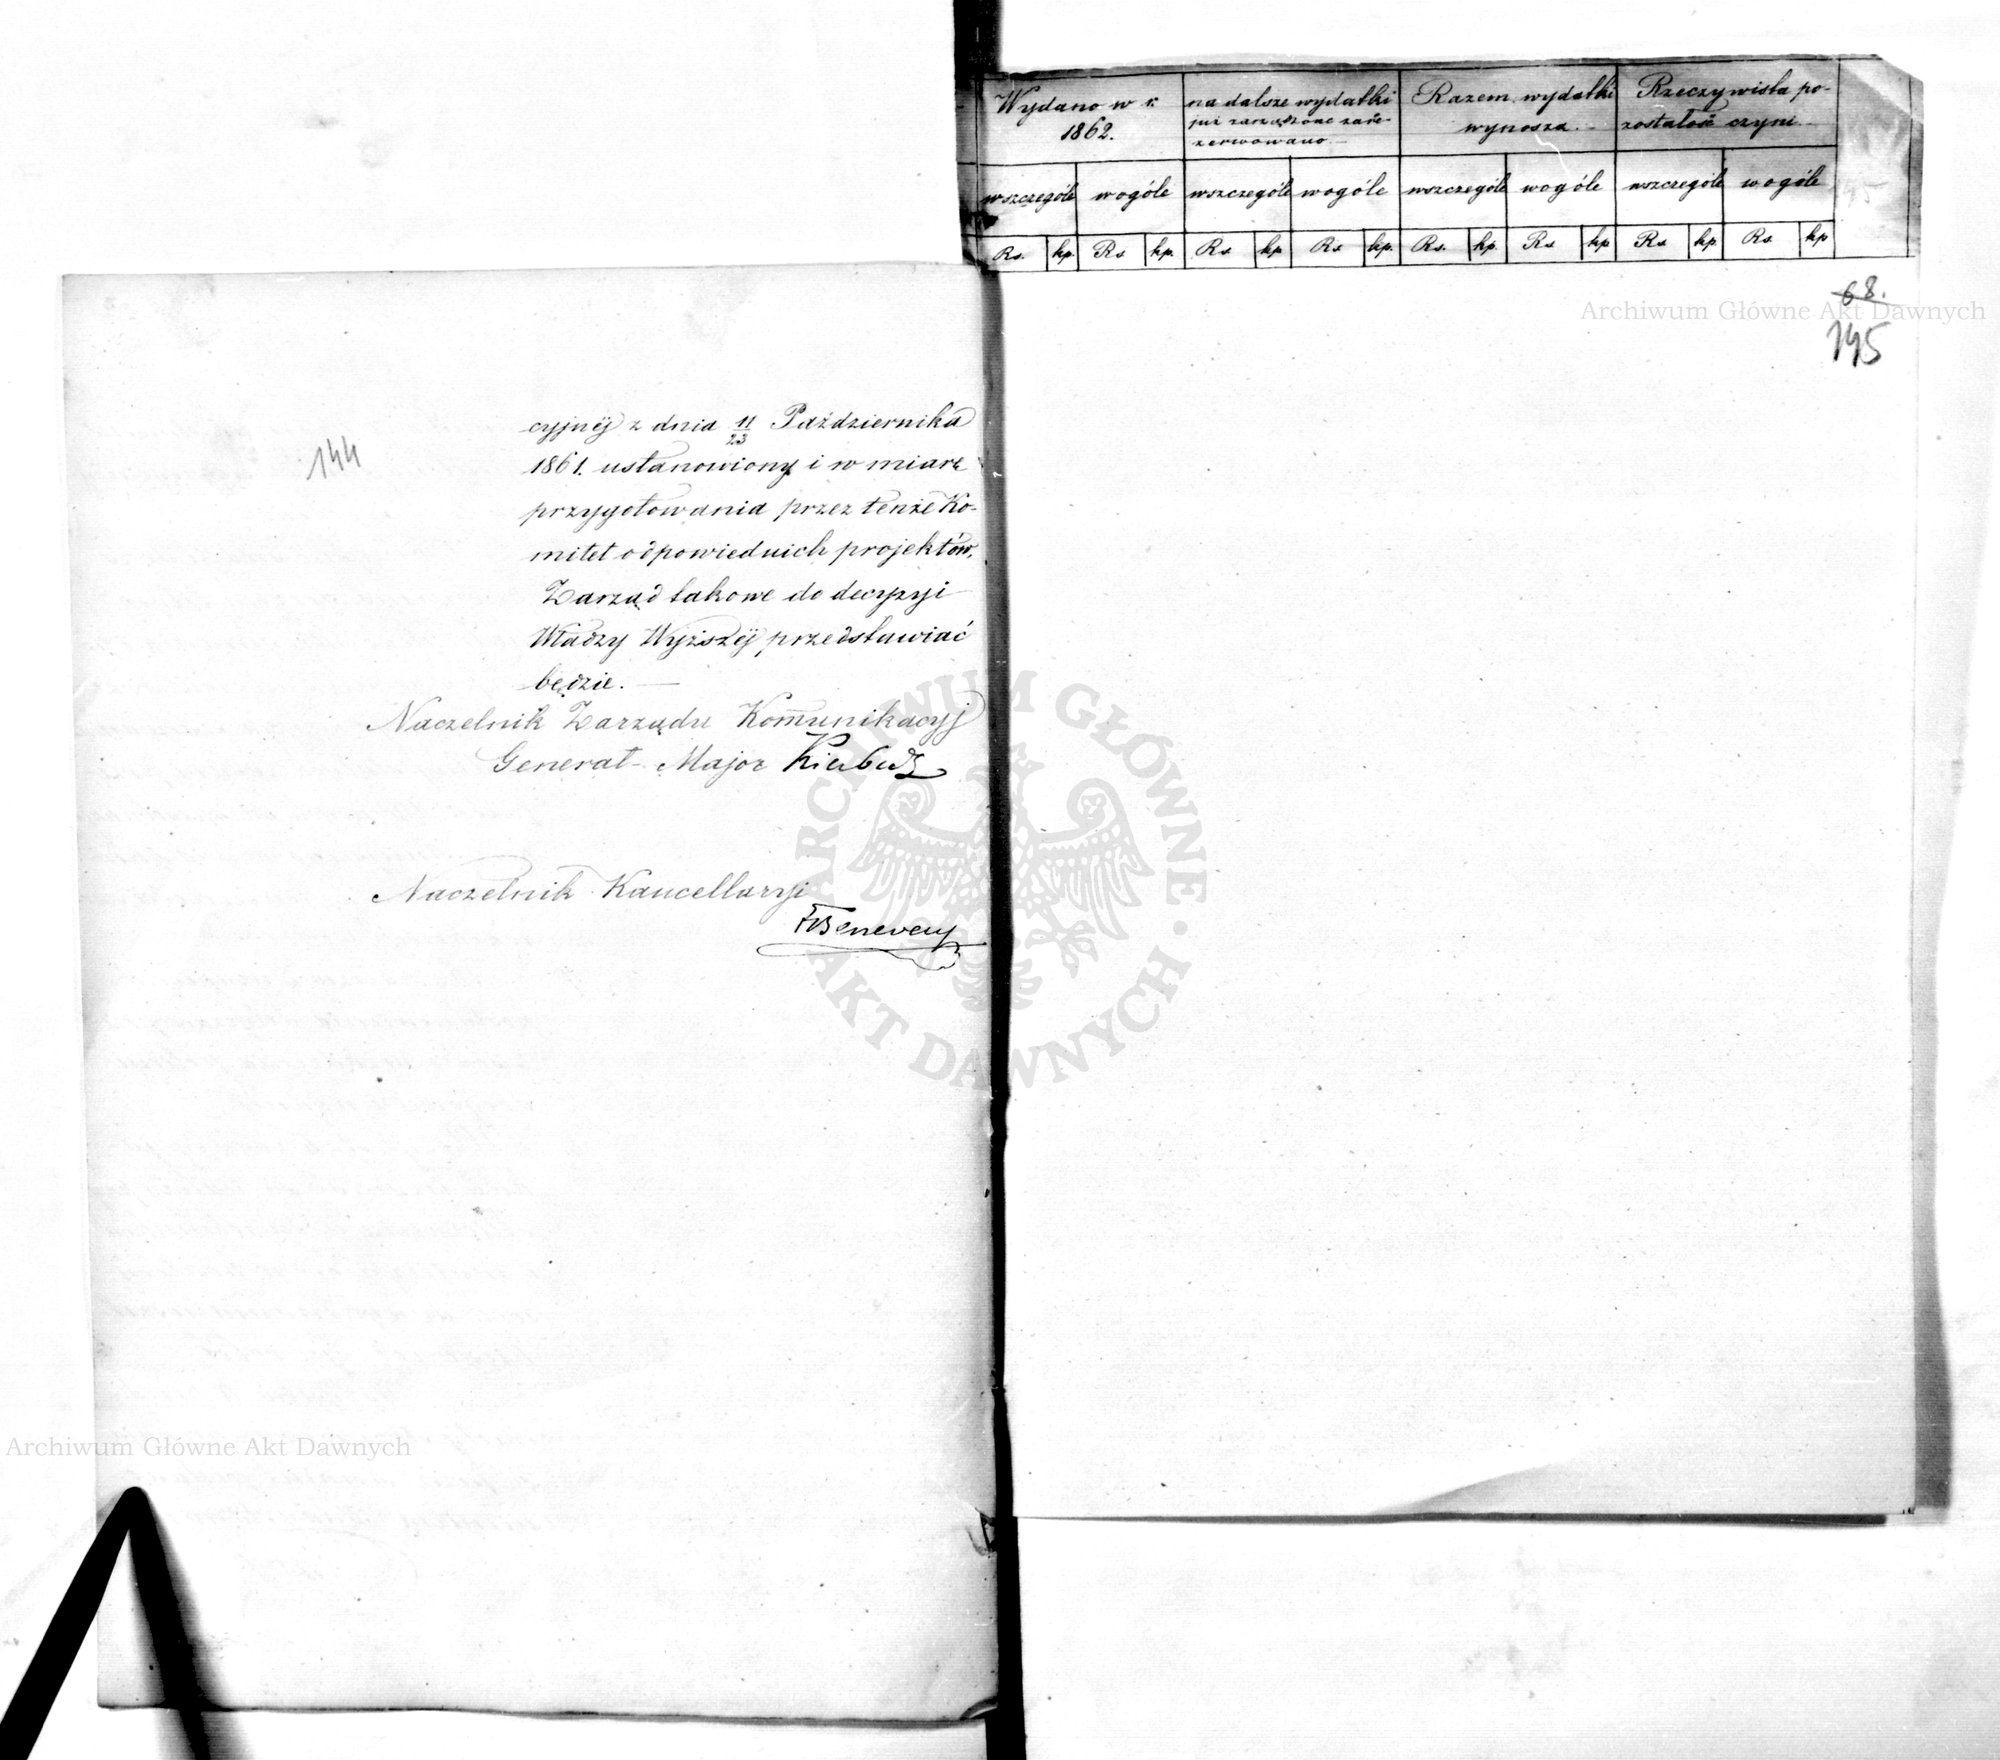 144
cyjnéj z dnia 11/23 Października
1861. ustanowiony i w miarę
przygotowania przez tenże Ko-
mitet odpowiednich projektów,
Zarząd takowe do decyzyi
Władzy Wyższéj przedstawiać
będzie. —
Naczelnik Zarządu Komunikacyj
Generał-Major Kierbedź
Naczelnik Kancellaryi
Wydano w r. 1862.
na dalsze wydatki
już zarządzone zare-
zerwowano —
Razem wydatki
wynoszą. —
Rzeczywista po-
zostałość czyni —
wszczególe wogóle wszczególe wogóle wszczególe wogóle wszczególe wogóle
Rs. kp. Rs. kp. Rs. kp. Rs. kp. Rs. kp. Rs. kp. Rs. kp. Rs. kp.
68.
145
Archiwum Główne Akt Dawnych
ARCHIWUM GŁÓWNE · AKT DAWNYCH ·
Archiwum Główne Akt Dawnych